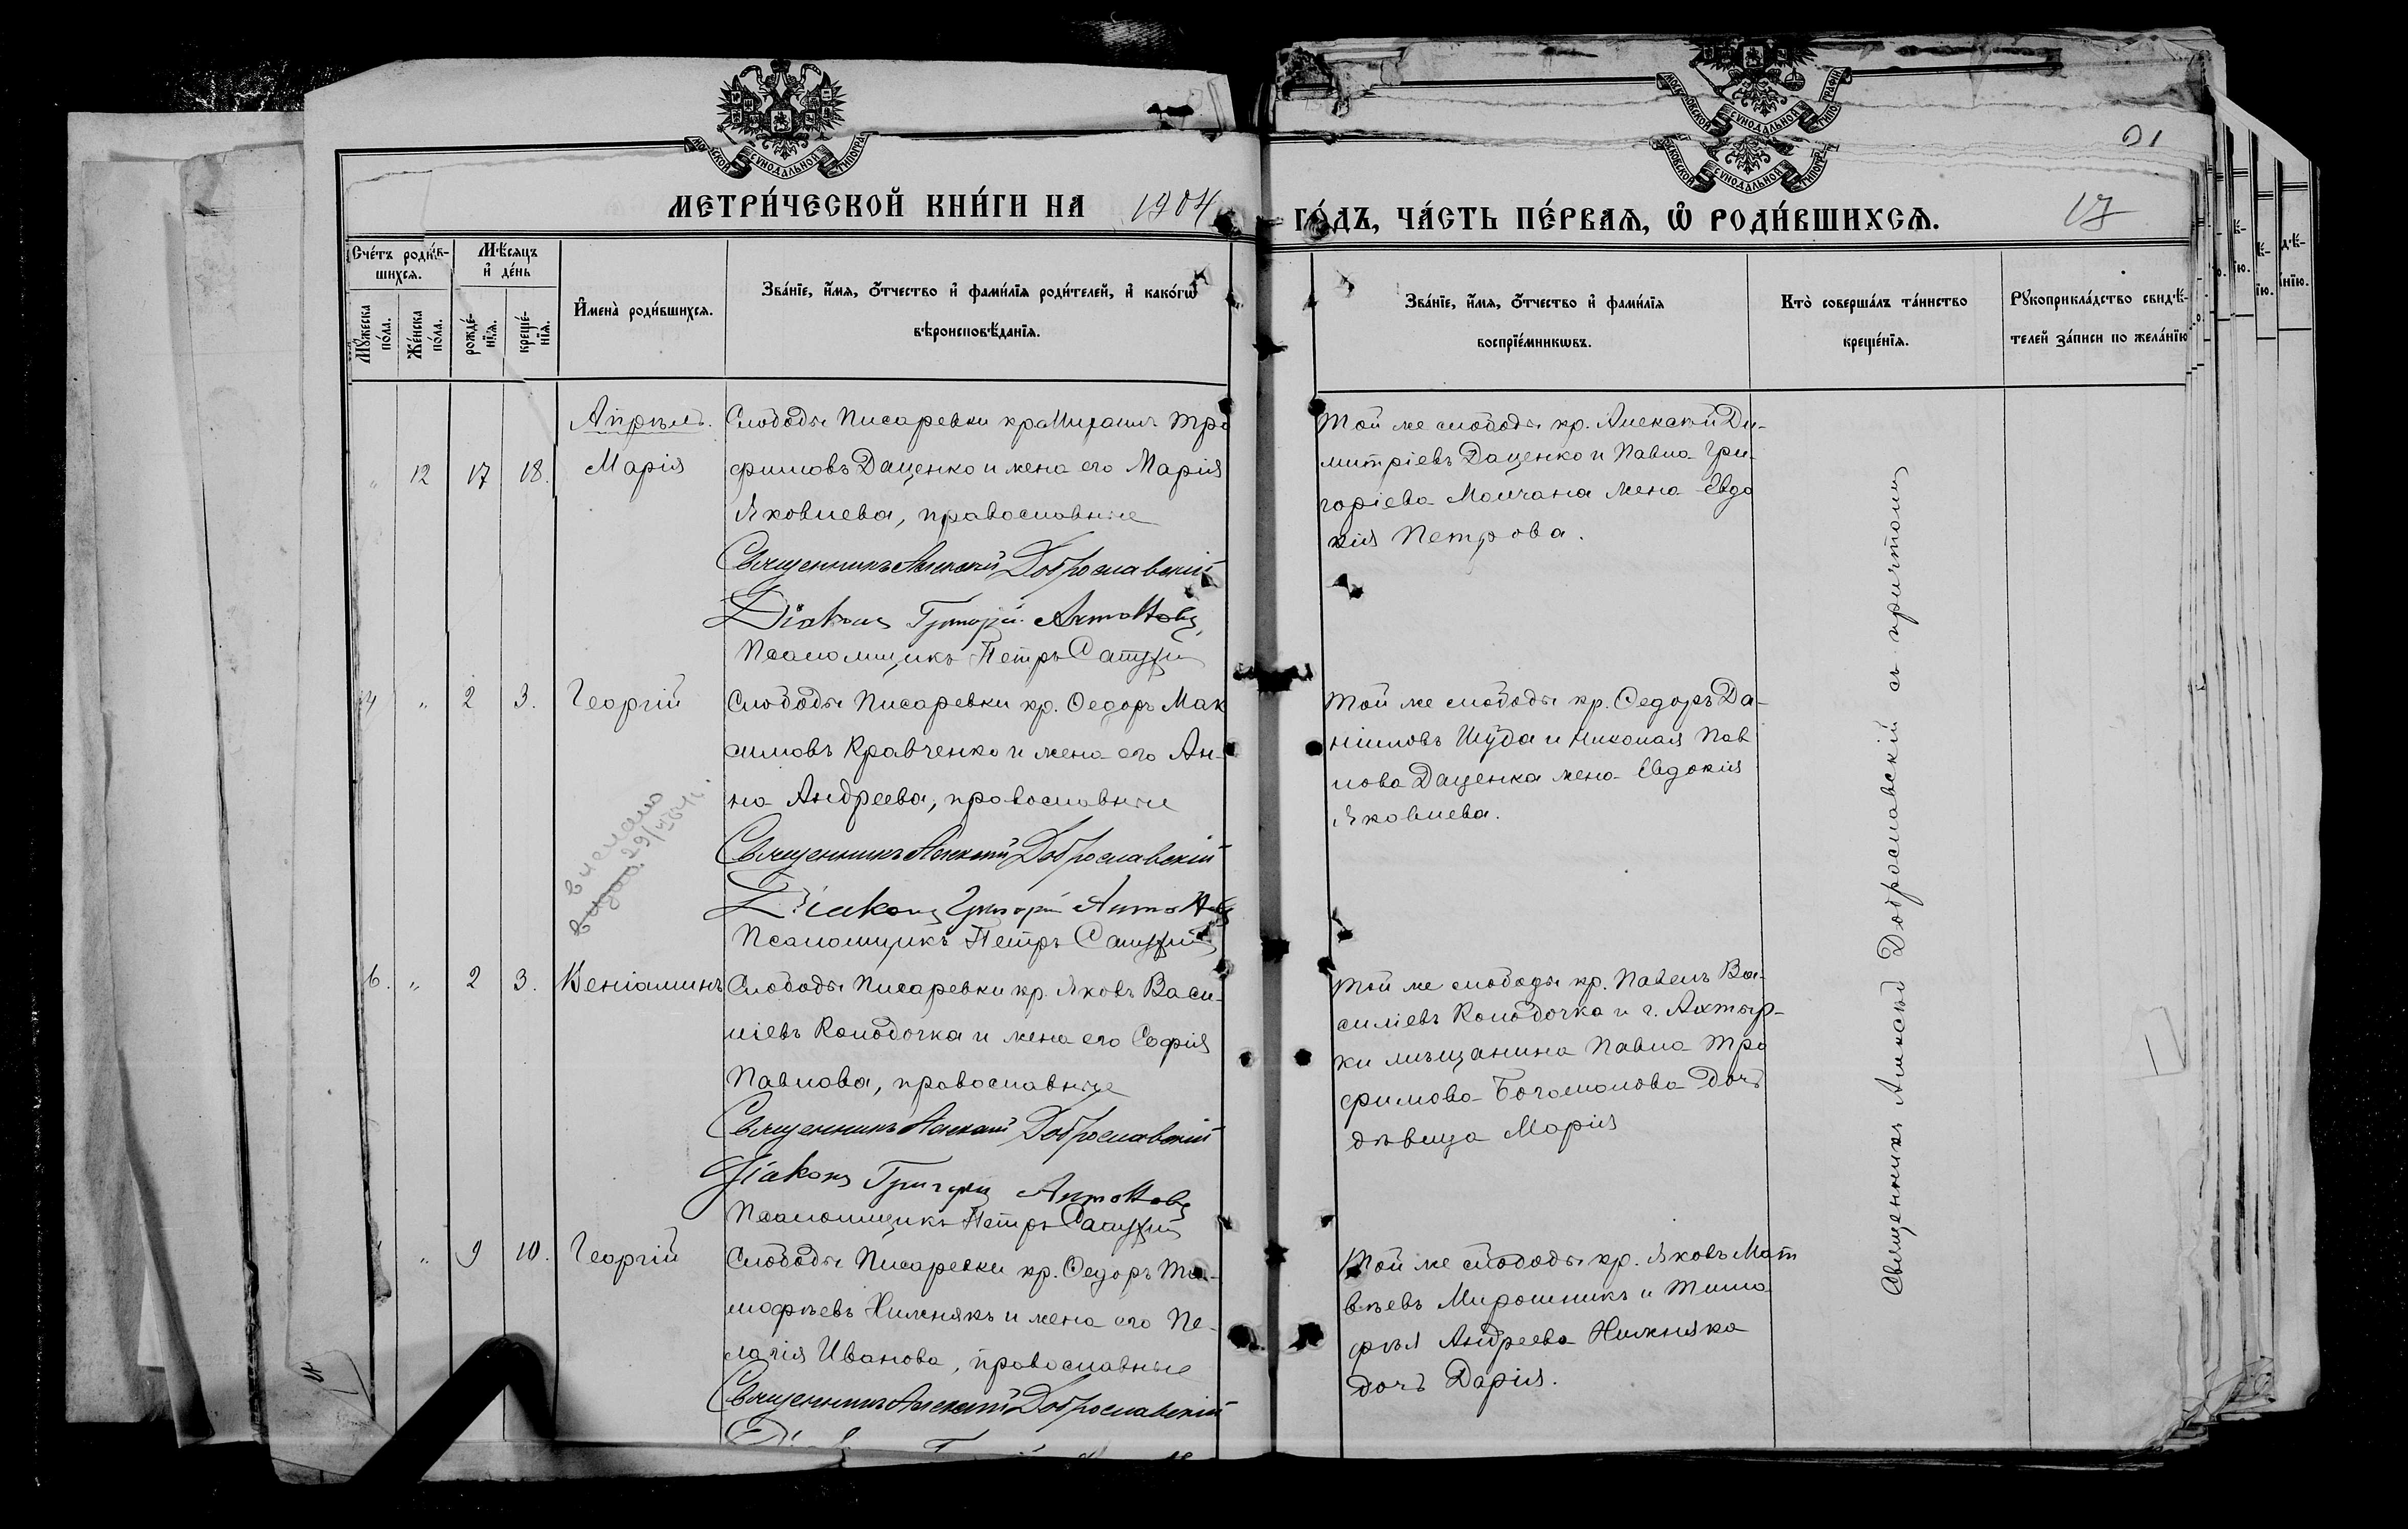 МОСКОВСКОЙ СУНОДАЛЬНОЙ ТИПОГРА
МОСКОВСКОЙ СУНОДАЛЬНОЙ ТИПОГРАФІИ
СКОВСКОЙ СУНОДАЛЬНОЙ ТИПОГРА
МЕТРИ́ЧЕСКОЙ КНИ́ГИ НА 1904
ГО́ДЪ, ЧА́СТЬ ПЕ́РВАЯ, Ѡ҆ РОДИ́ВШИХСЯ.
17
Сче́тъ роди́в-
шихся.
Мѣ́сяцъ
и҆ де́нь
Му́жеска
по́ла.
Же́нска
по́ла.
рожде́-
нїя.
креще́-
нїя.
И҆мена̀ роди́вшихся.
Зва́нїе, и҆́мя, ѻ҆́тчество и҆ фами́лїя роди́телей, и҆ како́гѡ
вѣроисповѣ́данїя.
Зва́нїе, и҆́мя, ѻ҆́тчество и҆ фами́лїя
воспрїе́мникѡвъ.
Кто̀ соверша́лъ та́инство
креще́нїя.
Рукоприкла́дство свидѣ́-
телей за́писи по жела́нїю
Апрѣль.
" 12 17 18. Марія
Слободы Писаревки кр. Михаилъ Тро
фимовъ Даценко и жена его Марія
Яковлева, православные
Священникъ Алексѣй Доброславскій
Діаконъ Григорій Антоновъ
Псаломщикъ Петръ
Той же слободы кр. Алексѣй Ди-
митріевъ Даценко и Павла Гри-
горіева Молчана жена Евдо
кія Петрова.
" 2 3. Георгій
Слободы Писаревки кр. Ѳедоръ Мак
симовъ Кравченко и жена его Ан-
на Андреева, православные
Священникъ Алексѣй Доброславскій
Діаконъ Григорій Антоновъ
Псаломщикъ Петръ
Той же слободы кр. Ѳедоръ Да-
ніиловъ Шуда и Николая Пав
лова Даценка жена Евдокія
Яковлева.
6. " 2 3. Веніаминъ
Слободы Писаревки кр. Яковъ Васи-
ліевъ Колодочка и жена его Софія
Павлова, православные
Священникъ Алексѣй Доброславскій
Діаконъ Григорій Антоновъ
Псаломщикъ Петръ
Той же слободы кр. Павелъ Ва-
силіевъ Колодочка и г. Ахтыр-
ки мѣщанина Павла Тро
фимова Богомолова дочь
дѣвица Марія
" 9 10. Георгій
Слободы Писаревки кр. Ѳедоръ Ти-
мофѣевъ Нижнякъ и жена его Пе-
лагія Иванова, православные
Священникъ Алексѣй Доброславскій
Той же слободы кр. Яковъ Мат
вѣевъ Мирошникъ и Тимо
фѣя Андреева Нижняка
дочь Дарія.
Священникъ Алексѣй Доброславскій съ причтомъ